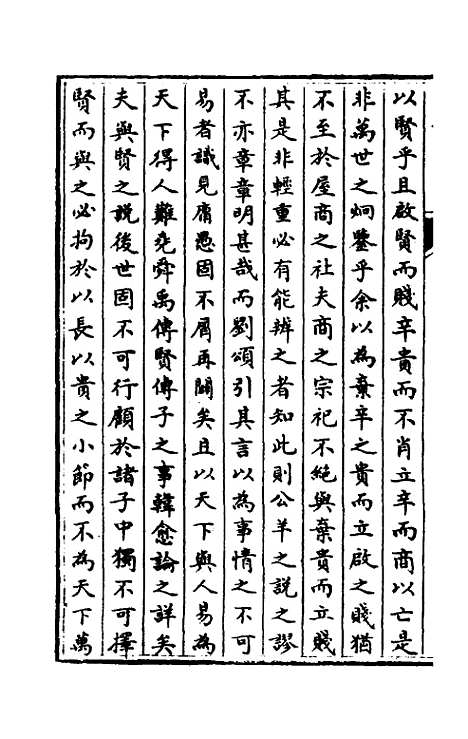 以賢乎且啟賢而賤辛貴而不肖立辛而商以亡是
非萬世之炯鑒乎余以為棄辛之貴而立啟之賤猶
不至於屋商之社夫商之宗祀不絕與棄貴而立賤
其是非輕重必有能辨之者知此則公羊之說之謬
不亦章章明甚哉而劉頌引其言以為事情之不可
易者識見庸愚固不屑再闢矣且以天下與人易為
天下得人難堯舜禹傳賢傳子之事韓愈論之詳矣
夫與賢之說後世固不可行顧於諸子中獨不可擇
賢而與之必拘於以長以貴之小節而不為天下萬